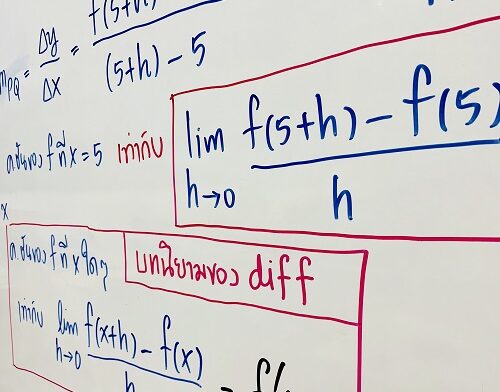 m_PQ = Δy/Δx = f(5+h)/(5+h) - 5
ค.ชันของ f ที่ x = 5 เท่ากับ lim h→0 f(5+h) - f(5)/h
x
ค.ชันของ f ที่ x ใดๆ
บทนิยามของ diff
เท่ากับ lim h→0 f(x+h) - f(x)/h = f'